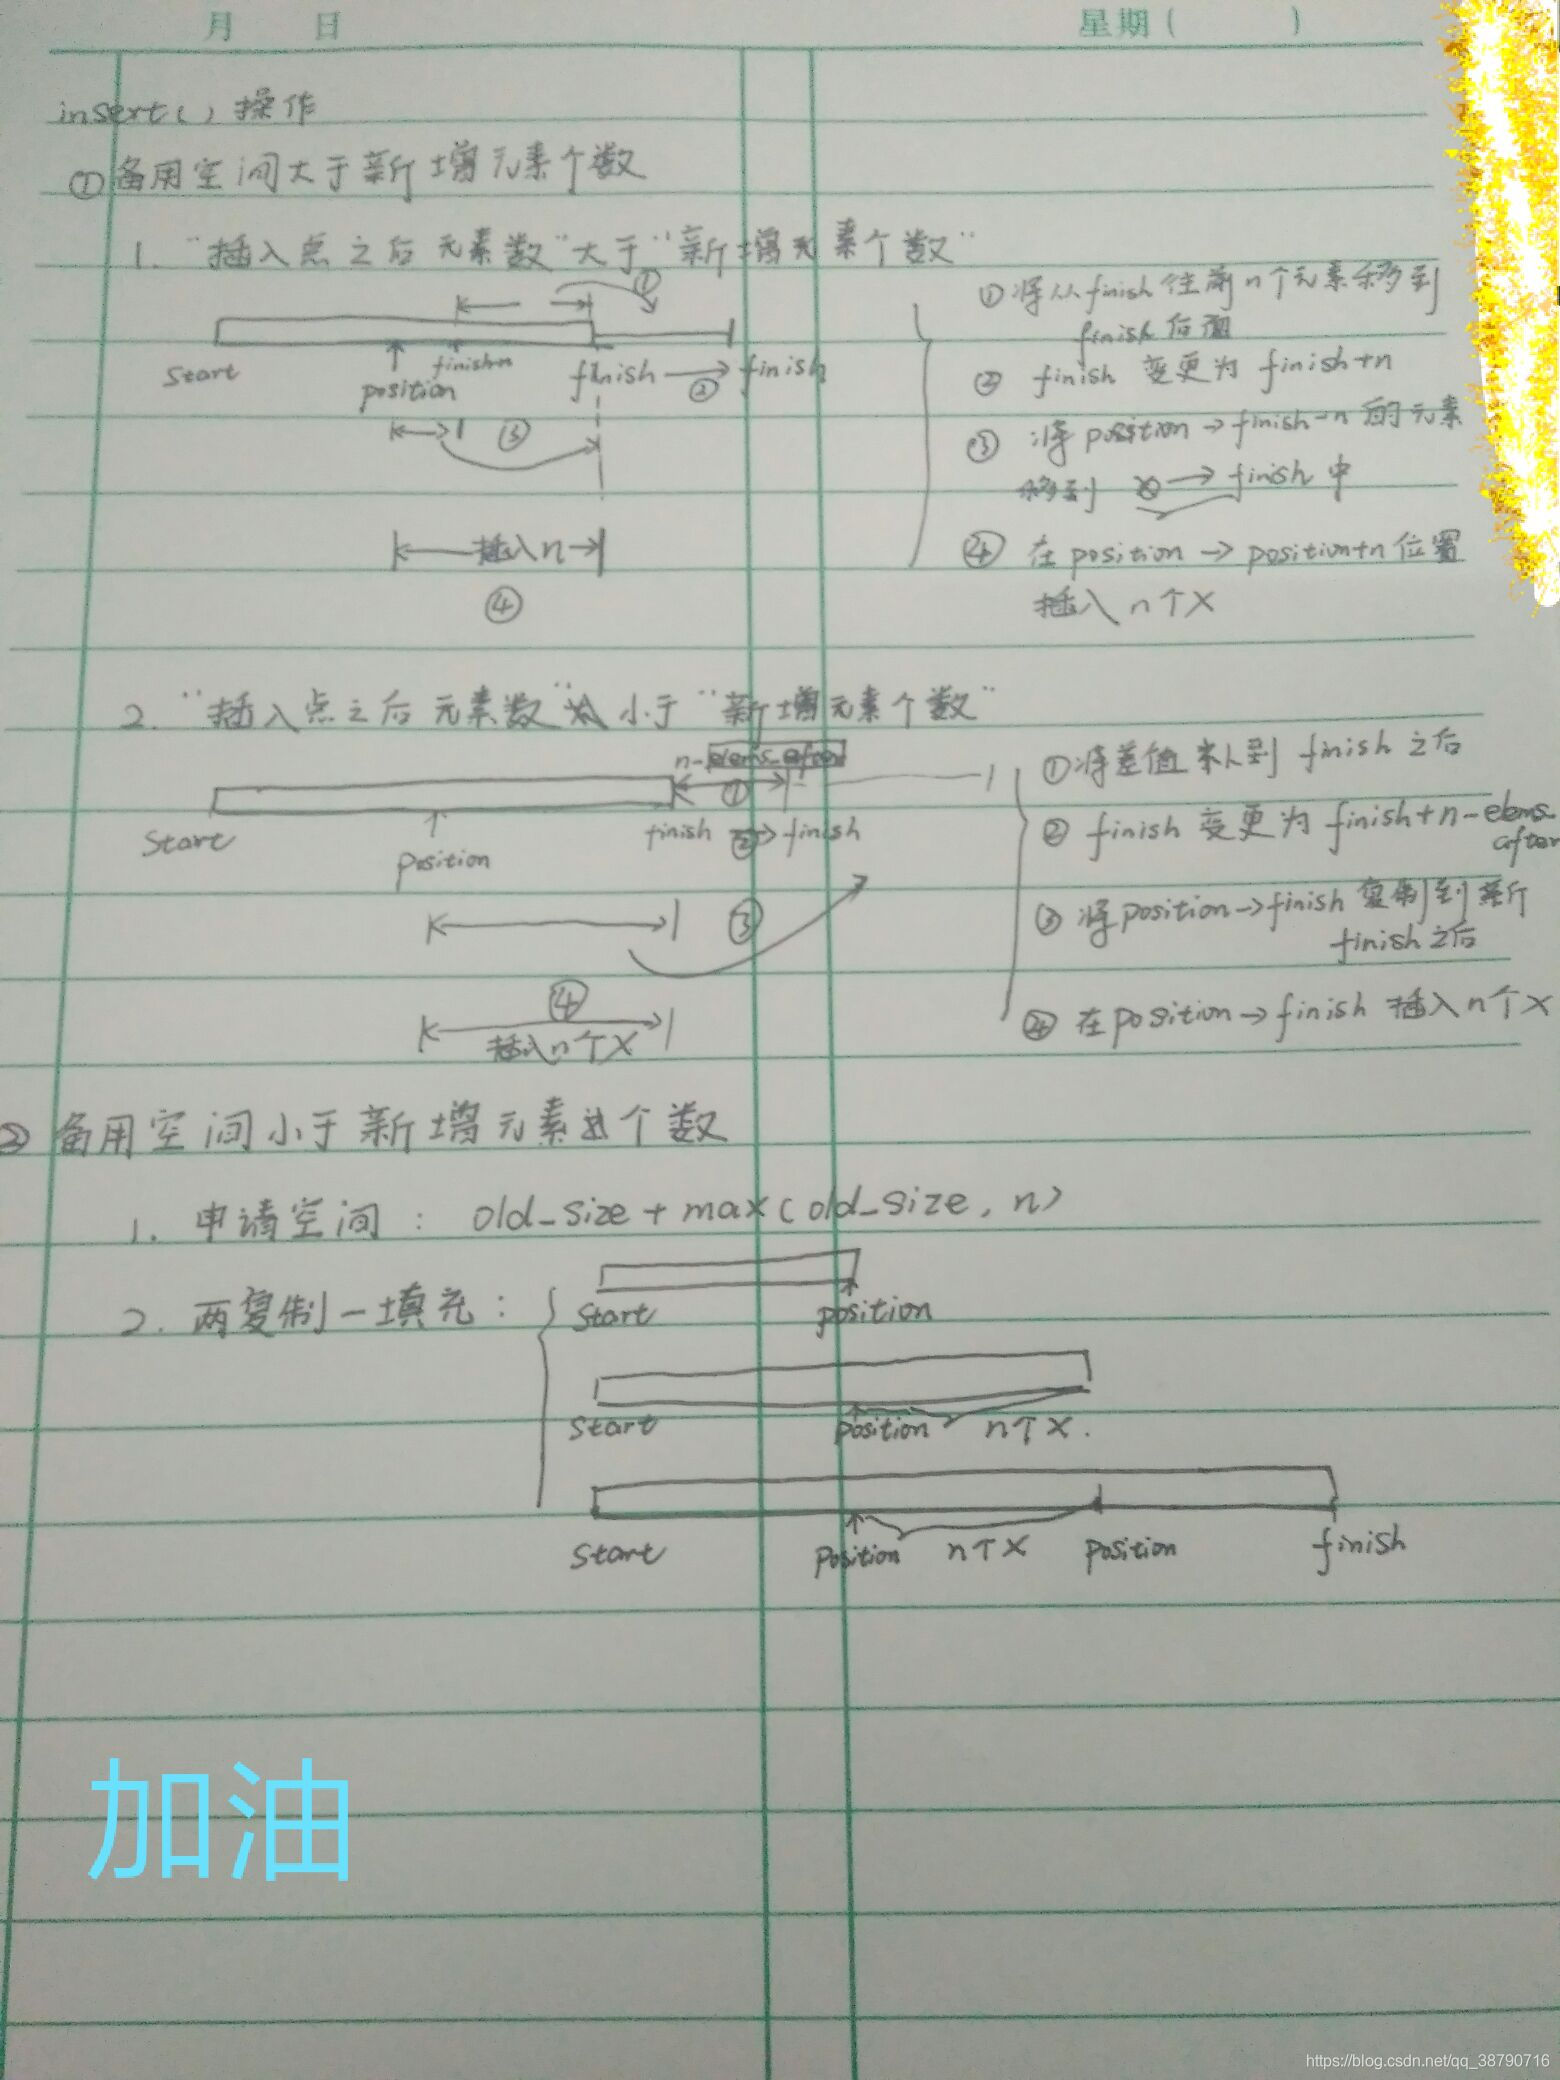 月 日 星期( )
insert()操作
①备用空间大于新增元素个数
1. "插入点之后元素数"大于"新增元素个数"
①
Start
position
finish-n
finish → finish
②
③
←插入n→
④
①将从finish往前n个元素移到
finish后面
② finish 变更为 finish+n
③ 将position→finish-n的元素
移到 → finish中
④ 在position→position+n位置
插入n个X
2. "插入点之后元素数"小于"新增元素个数"
n-elems_after
①
Start
position
finish ② finish
③
④
插入n个X
①将差值 到 finish之后
② finish变更为finish+n-elems
after
③ 将position→finish复制到新
finish之后
④ 在position→finish 插入n个X
② 备用空间小于新增元素个数
1. 申请空间: old_size + max(old_size, n)
2. 两复制一填充:
Start position
Start position n个X.
Start position n个X position finish
加油
https://blog.csdn.net/qq_38790716